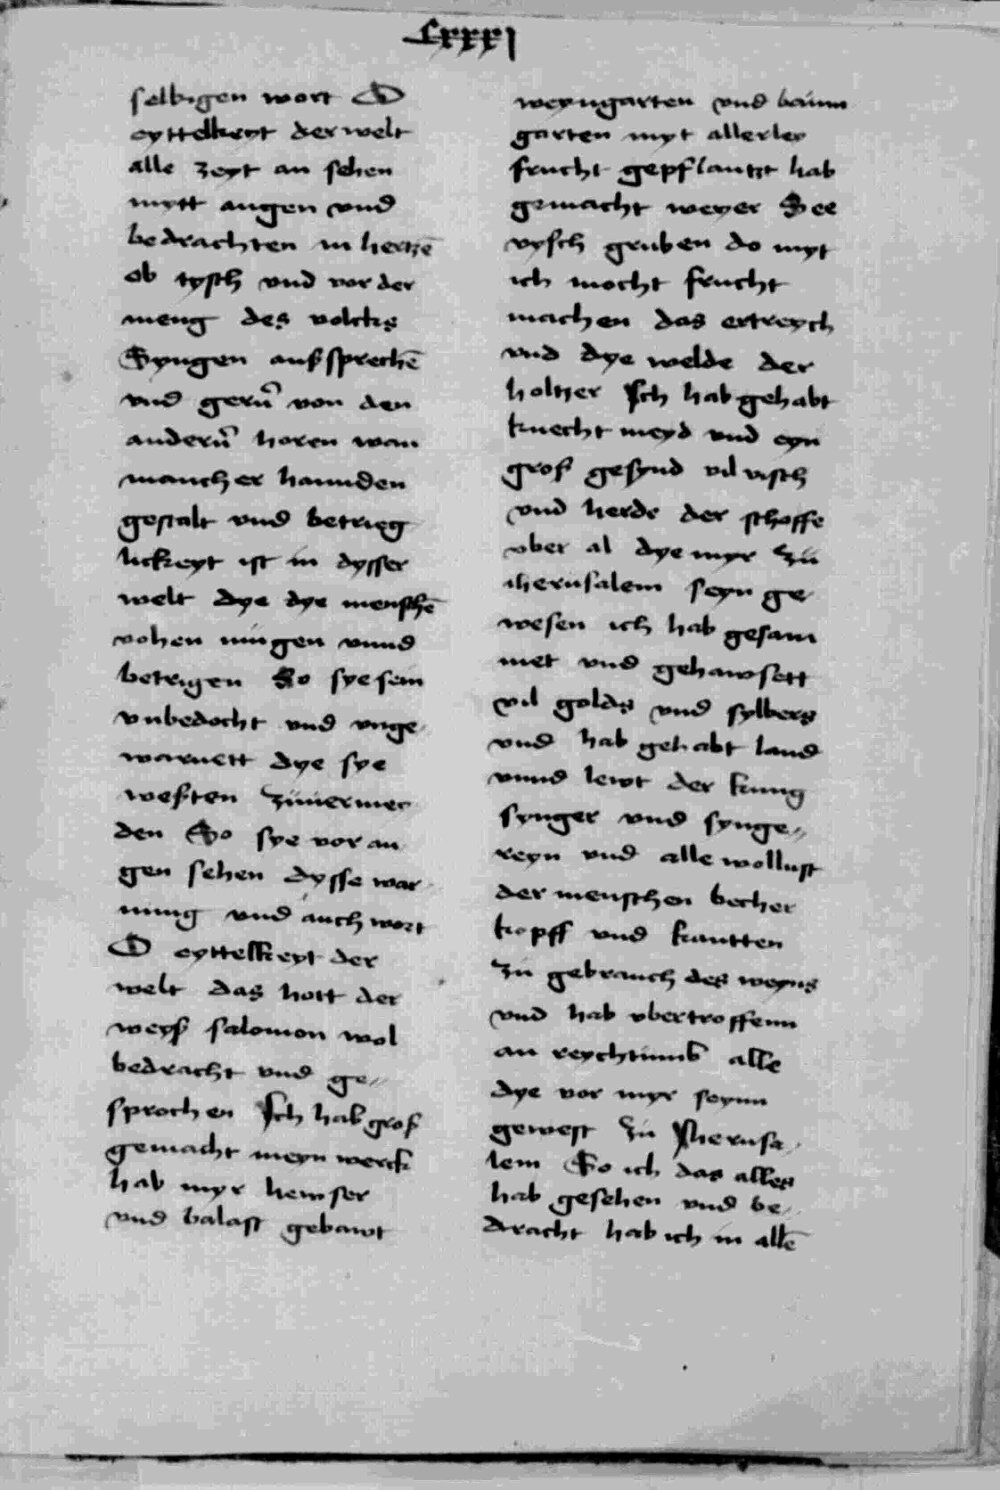 Lxxxi
selbigen wort O
eyttelkeyt der welt
alle zeyt an sehen
mytt augen vnd
bedrachten in hertzē
ob tysch vnd vor der
meng des volcks
Syngen aussprechē
vnd gerñ von den
anderñ horen wan
mancher hannden
gestalt vnd betrieg
lickeyt ist in dysser
welt dye dye menschē
vohen mugen vnnd
betrigen So sye sein
vnbedocht vnd vnge
warnett dye sye
westen zuuermey
den So sye vor au
gen sehen dysse war
nung vnd auch wort
O eyttelkeyt der
welt das hott der
weyß salomon wol
bedracht vnd ge
sprochen Ich hab groß
gemacht meyn werck
hab myr hewser
vnd balast gebawt
weyngarten vnd baum
garten myt allerley
frucht gepflantzt hab
gemacht weyer See
vysch gruben do myt
ich mocht frucht
machen das ertreych
vnd dye welde der
holtzer Ich hab gehabt
knecht meyd vnd eyn
groß gesynd vil visch
vnd herde der schoffe
vber al dye myr zu
iherusalem seyn ge
wesen ich hab gesam
met vnd gehawsett
vil golds vnd sylbers
vnd hab gehabt land
vnnd lewt der kung
synger vnd synge
reyn vnd alle wollust
der menschen becher
kopff vnd kantten
zu gebrauch des weyns
vnd hab vbertroffenn
an reychtumb alle
dye vor myr seynn
gewest zu Iherusa
lem So ich das alles
hab gesehen vnd be
dracht hab ich in allē